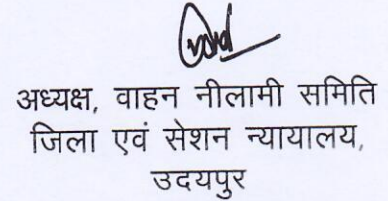 अध्यक्ष, वाहन नीलामी समिति
जिला एवं सेशन न्यायालय,
उदयपुर